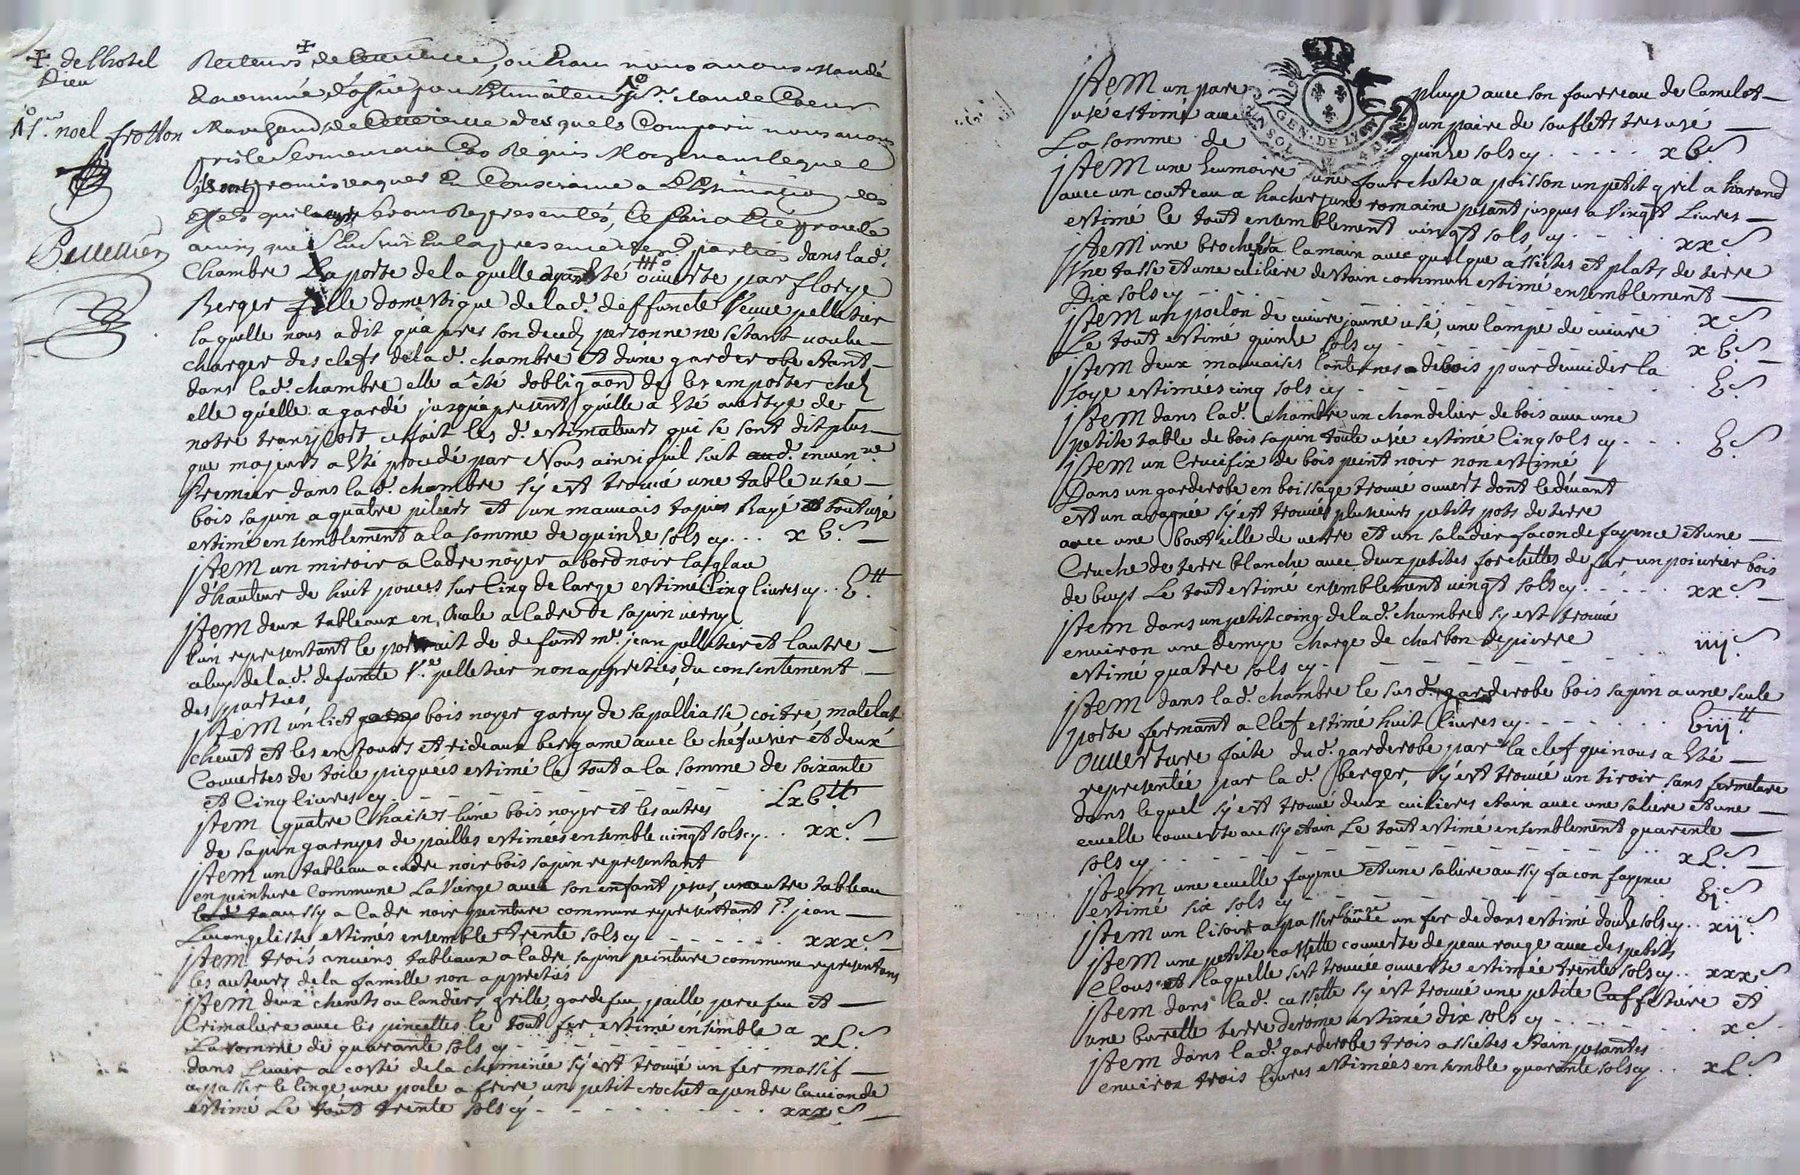 + de lhotel
Dieu
1o Sr. noel frotton
Pelletier
Recteurs + de ou étant nous avons mandé
et nommé d'office pour Estimateurs 1o Sr. claude
Marchands de desquels Comparu nous avons
pris le Serment au Cas Requis Moyennant lequel
ils ont promis vaquer En Conscience a L'Estimation des
effets qui leurs seront Representés, Ce fait a Eté procédé
ainsy que S'Ensuit En la presence desd. parties dans lad.
Chambre La porte de laquelle ayant Eté ouverte par florye
Berger fille domestique de lad. deffuncte veuve pelletier
laquelle nous a dit qu'apres son decedz personne ne s'etant voulu
charger des clefs de lad. chambre et d'une garderobe etant
dans lad. chambre elle a été obligaon de les emporter chez
elle qu'elle a gardé jusqu'apresent qu'elle a Eté avertye de
notre transport ce fait les d. estimateurs que se sont dit plus
que majeurs a Eté procedé par Nous ainsi qu'il suit aud. inven.re
Premier dans lad. chambre s'y est trouvé une table usée
bois sapin a quatre piliers et un mauvais tapis Rayé et tout usé
estimé ensemblement a la somme de quinze sols cy... xv s
jtem un miroir a Cadre noyer a bord noir la glace
d'hauteur de huit pouces sur Cinq de large estimé Cinq livres cy.. v tt
jtem deux tableaux en ovale a Cadre de sapin verny
l'un representant le portrait de defunt mr. jean pelletier et lautre
celuy de lad. defuncte Ve. pelletier non appretiés, du consentement
des parties
jtem un lict bois noyer garny de sa palliasse, coitre, matelat
chevet et les entours et rideaux bergame avec le chef et deux
Couvertes de toile picquées estimé le tout a la somme de soixante
et Cinq livres cy - - - - Lxv tt
jtem quatre Chaises l'une bois noyer et les autres
de sapin garnyes de pailles estimées ensemble vingt sols cy.. xx s
jtem un tableau a cadre noir bois sapin representant
en peinture Commune La Vierge avec son enfant jesus, un autre tableau
aussy a Cadre noir peinture commune representant St. jean
Levangeliste estimés ensemble trente sols cy - - - - xxx s
jtem trois anciens tableaux a Cadre sapin peinture commune representans
les auteurs de la famille non appretiés
jtem deux chenets ou landiers grille gardefeu paille perce feu et
Crimaliere avec les pincettes le tout fer estimé ensemble a
La somme de quarante sols cy - - - - xL s
dans a costé de la cheminée s'y est trouvé un fer massif
a passer le linge une poele a frire un petit crochet a pendre la viande
estimé Le tout trente sols cy - - - - xxx s
jtem un parapluye avec son fourreau de Camelot
usé estimé avec un paire de soufflets tres usé
La somme de quinze sols cy - - - - xv s
GEN. DE LYON
jtem une Ecumoire une fourchete a poisson un petit gril a harand
avec un couteau a hacher, une romaine pesant jusques a Vingt Livres
estimé le tout ensemblement vingt sols cy - - - - xx s
jtem une broche a la main avec quelque assietes et plats de terre
une tasse et une culiere destain commun estimé ensemblement
Dix sols cy - - - - x s
jtem un poilon de cuivre jaune usé, une lampe de cuivre
Le tout estimé quinze sols cy - - - - xv s
jtem deux mauvaises lanternes de bois pour devuider la
soye estimées cinq sols cy - - - - v s
jtem dans lad. Chambre un chandelier de bois avec une
petite table de bois sapin toute usée estimé Cinq sols cy - - - v s
jtem un Crucifix de bois peint noir non estimé
Dans un garderobe en boissage trouvé ouvert dont le devant
est un s'y est trouvé plusieurs petits pots de terre
avec une bouteille de verre et un saladier facon de fayence et une
Cruche de terre blanche avec deux petites forchettes de fer un poivrier bois
de buys Le tout estimé ensemblement vingt sols cy - - - - xx s
jtem dans un petit coing de lad. chambre s'y est trouvé
environ une demye charge de charbon de pierre
estimé quatre sols cy - - - - iiij s
jtem dans lad. chambre le susd. garderobe bois sapin a une seule
porte fermant a Clef estimé huit livres cy - - - - viij tt
Ouverture faite dud. garderobe par la clef qui nous a Eté
representée par lad. berger, s'y est trouvé un tiroir sans fermeture
dans lequel s'y est trouvé deux cuilieres etain avec une saliere et une
ecuelle couverte aussy etain Le tout estimé ensemblement quarente
sols cy - - - - xL s
jtem une ecuelle fayence et une saliere aussy facon fayence
estimé six sols cy - - - - vj s
jtem un lisoir a passer linge avec un fer dedans estimé douze sols cy.. xij s
jtem une petite cassette couverte de peau rouge avec des petits
Clous et laquelle s'est trouvée ouverte estimée trente sols cy.. xxx s
jtem dans lad. cassette s'y est trouvé une petite Caffetiere et
une burelle terre derome estimé dix sols cy - - - - x s
jtem dans lad. garderobe trois assietes etain pesantes
environ trois livres estimées ensemble quarante sols cy.. xL s